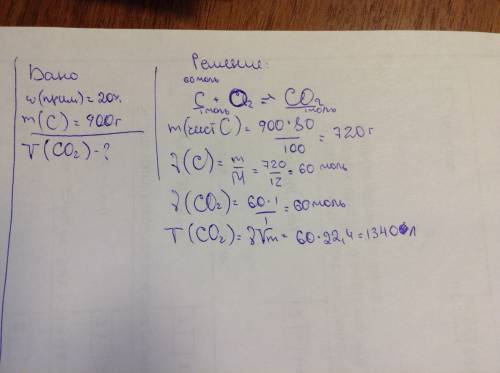 Дано
w(прим)=20%
m(C)=900г
V(CO₂)-?
Решение:
60моль
C + O₂ => CO₂
1моль 1моль
m(чист C) = 900·80/100 = 720г
ν(C) = m/M = 720/12 = 60 моль
ν(CO₂) = 60·1/1 = 60моль
V(CO₂) = νVm = 60·22,4 = 1340 л